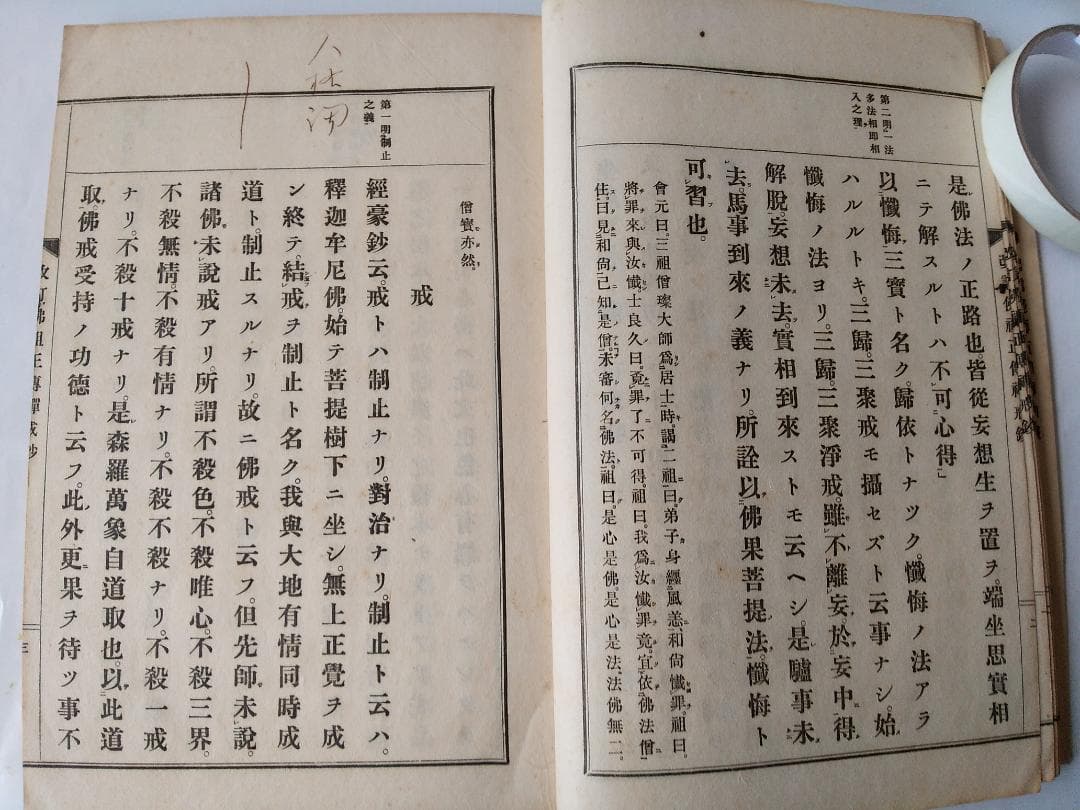 第二明一法
多法相即相
入之理
是佛法ノ正路也。皆從妄想生ヲ置ヲ。端坐思實相
ニテ解スルトハ不可心得」
以懺悔三寶ト名ク。歸依トナツク。懺悔ノ法アラ
ハルルトキ。三歸。三聚戒モ攝セズト云事ナシ。始
懺悔ノ法ヨリ。三歸。三聚淨戒。雖不離妄。於妄中得
解脫。妄想未去。實相到來ストモ云ヘシ。是驢事未
去。馬事到來ノ義ナリ。所詮以佛果菩提法。懺悔ト
可習也。
會元曰。三祖僧璨大師爲居士時。謁二祖曰。弟子身纏風恙。和尙懺罪。祖曰。
將罪來與汝懺。士良久曰。覓罪了不可得。祖曰。我爲汝懺罪竟。宜依佛法僧
住。曰。見和尙已知是僧。未審何名佛法。祖曰。是心是佛。是心是法。法佛無二。
二
僧寳亦然。
戒
第一明制止
之義
經豪鈔云。戒トハ制止ナリ。對治ナリ。制止ト云ハ。
釋迦牟尼佛。始テ菩提樹下ニ坐シ。無上正覺ヲ成
ン終テ。結戒ヲ制止ト名ク。我與大地有情同時成
道ト。制止スルナリ。故ニ佛戒ト云フ。但先師未說。
諸佛未說戒アリ。所謂不殺色。不殺唯心。不殺三界。
不殺無情。不殺有情ナリ。不殺不殺ナリ。不殺一戒
ナリ。不殺十戒ナリ。是森羅萬象自道取也。以此道
取。佛戒受持ノ功德ト云フ。此外更果ヲ待ツ事不
改訂佛祖正傳禪戒鈔
三